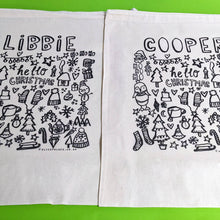 LIBBIE
hello
CHRISTMAS
COOPER
hello
CHRISTMAS